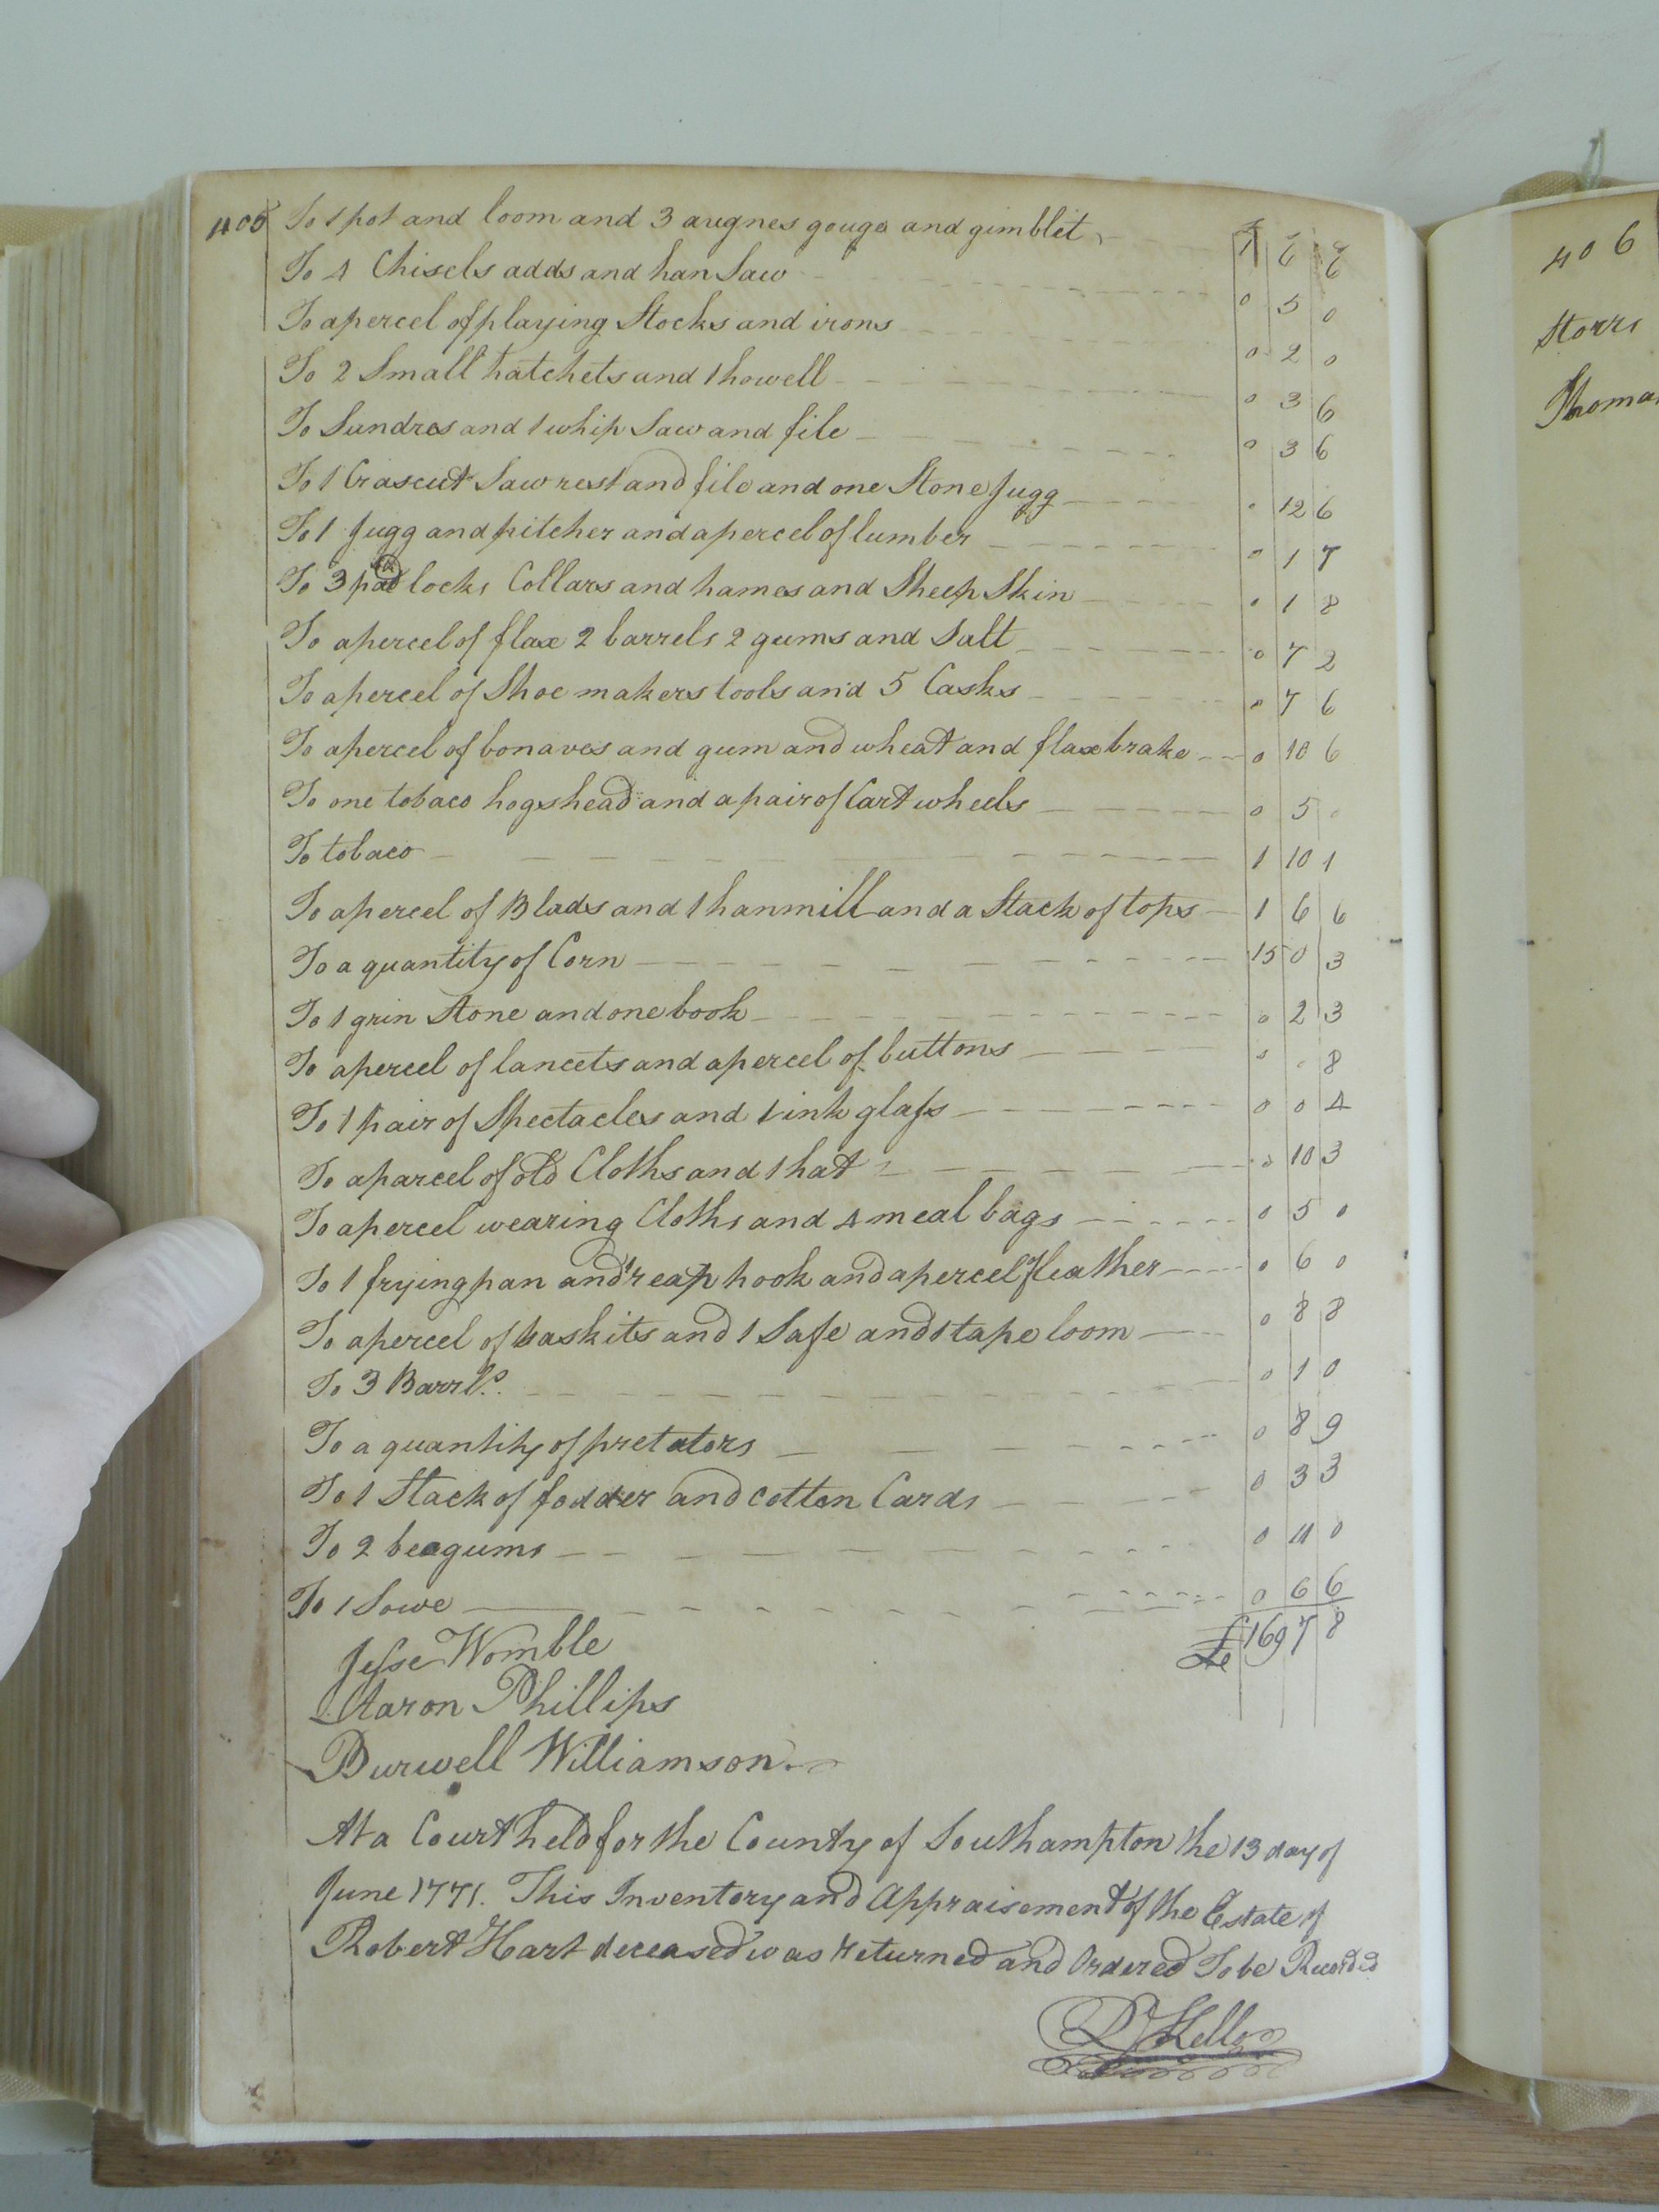 405
To 1 pot and loom and 3 augnes gouge and gimblet 1 6 6
To 4 Chisels adds and han Saw 0 5 0
To a percel of playing Stocks and irons 0 2 0
To 2 Small hatchets and 1 howell 0 3 6
To Sundres and 1 whip Saw and file 0 3 6
To 1 Crascut Saw rest and file and one Stone Jugg 0 12 6
To 1 Jugg and pitcher and a percel of lumber 0 1 7
To 3 pad locks Collars and hames and Sheep Skin 0 1 8
To a percel of flax 2 barrels 2 gums and Salt 0 7 2
To a percel of Shoe makers tools and 5 Casks 0 7 6
To a percel of bonaves and gum and wheat and flax brake 0 10 6
To one tobaco hogshead and a pair of Cart wheels 0 5 0
To tobaco 1 10 1
To a percel of Blads and 1 hanmill and a Stack of tops 1 6 6
To a quantity of Corn 15 0 3
To 1 grin Stone and one book 0 2 3
To a percel of lancets and a percel of buttons 0 0 8
To 1 pair of Spectacles and 1 ink glass 0 0 4
To a parcel of old Cloths and 1 hat 0 10 3
To a percel wearing Cloths and 4 meal bags 0 5 0
To 1 frying pan and 1 reap hook and a percel of leather 0 6 0
To a percel of baskits and 1 Safe and 1 tape loom 0 8 8
To 3 Barrls. 0 1 0
To a quantity of pretators 0 8 9
To 1 Stack of fodder and cotton Cards 0 3 3
To 2 beagums 0 11 0
To 1 Sowe 0 6 6
£169 7 8
Jesse Womble
Aaron Phillips
Burwell Williamson
At a Court held for the County of Southampton the 13 day of
June 1771. This Inventory and Appraisement of the Estate of
Robert Hart deceased was returned and Ordered To be Recorded
R Kello
406
Storrs
Thomas